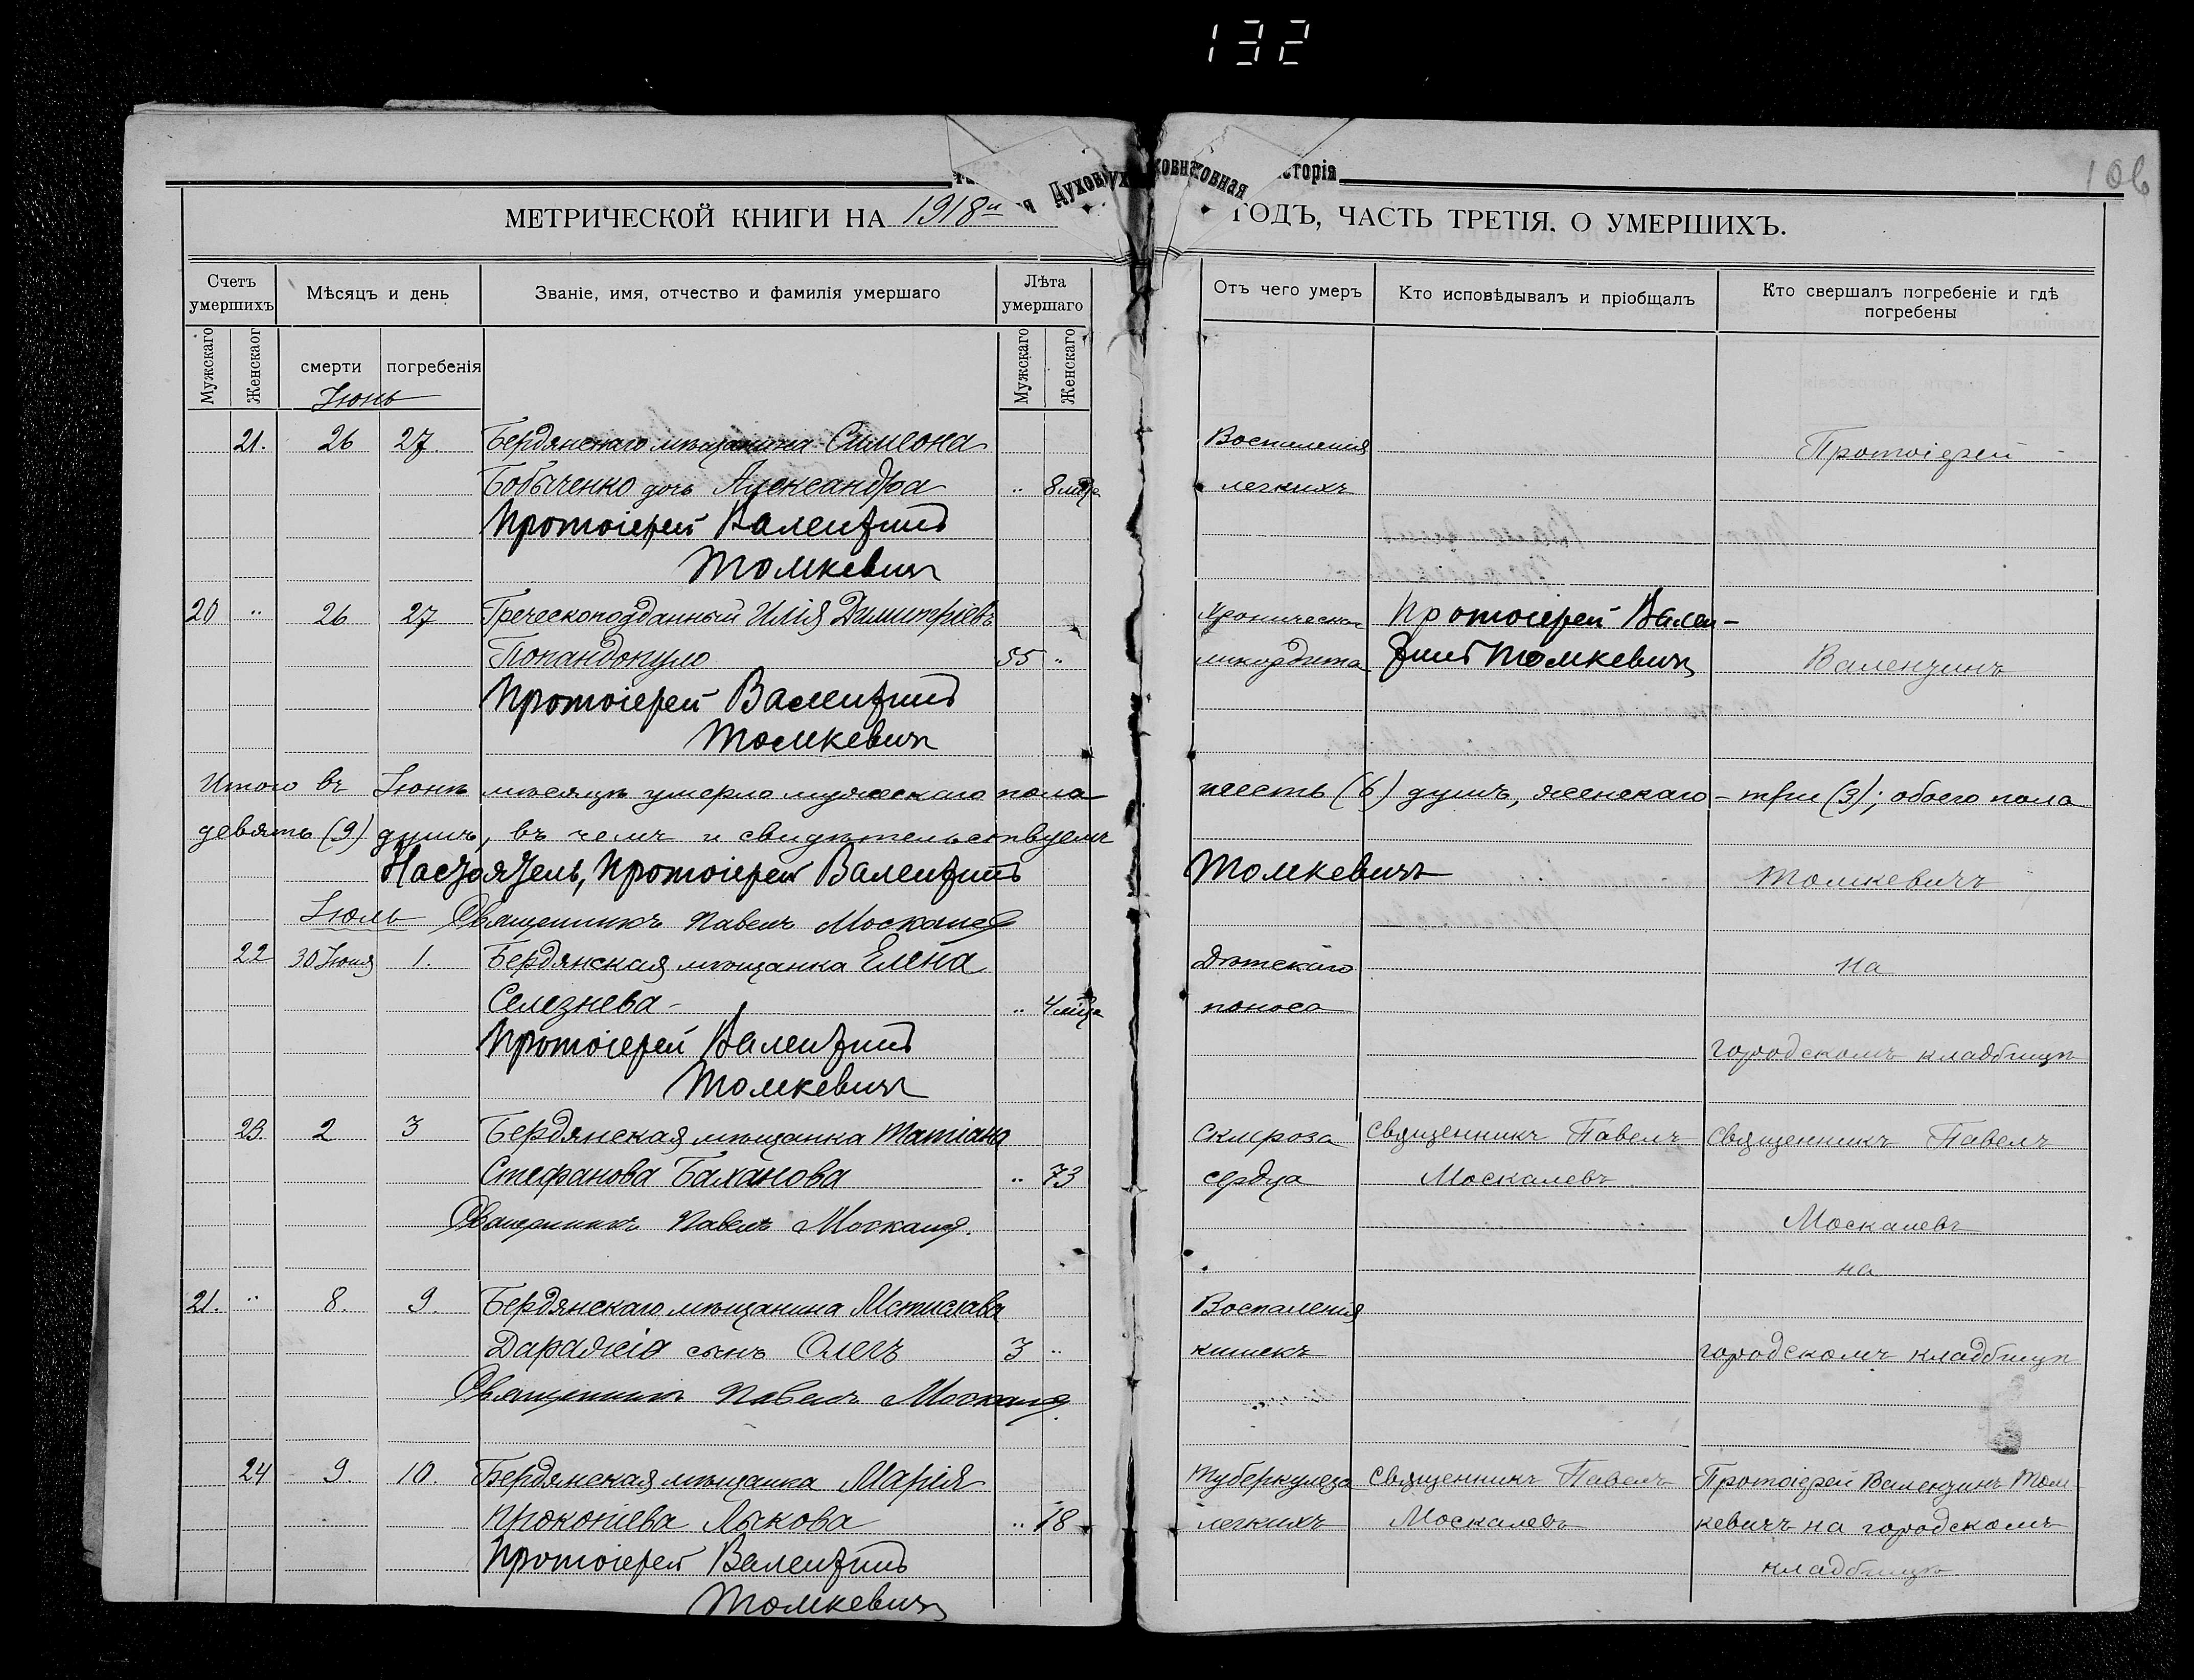 132
106
Духов
ховная
сторія
МЕТРИЧЕСКОЙ КНИГИ НА 1918й
ГОДЪ, ЧАСТЬ ТРЕТІЯ. О УМЕРШИХЪ.
Счетъ умершихъ
Мѣсяцъ и день
Званіе, имя, отчество и фамилія умершаго
Лѣта умершаго
Отъ чего умеръ
Кто исповѣдывалъ и пріобщалъ
Кто свершалъ погребеніе и гдѣ погребены
Мужскаго
Женскаог
смерти
погребенія
Мужскаго
Женскаго
Іюнь
21. 26 27. Бердянскаго мѣщанина Симеона Воспаленія Протоіерей
Бобыченко дочь Александра " 8 мѣс. легкихъ
Протоіерей Валентинъ
Томкевичъ
20 " 26 27 Греческоподданный Илія Димитріевъ Протоіерей Вален-
Попандопуло 55 " тинъ Томкевичъ Валентинъ
Протоіерей Валентинъ
Томкевичъ
Итого въ Іюнѣ мѣсяцѣ умерло мужескаго пола шесть (6) душъ, женскаго – три (3); обоего пола
девять (9) душъ, въ чемъ и свидѣтельствуемъ
Настоятель, Протоіерей Валентинъ Томкевичъ Томкевичъ
Іюль Священникъ Павелъ Москалевъ
22 30 Іюня 1. Бердянская мѣщанка Елена Дѣтскаго на
Селезнева - " 4 мѣс. поноса
Протоіерей Валентинъ городскомъ кладбищѣ
Томкевичъ
23. 2 3 Бердянская мѣщанка Татіана Склероза Священникъ Павелъ Священникъ Павелъ
Стефанова Баханова " 73 сердца Москалевъ
Священникъ Павелъ Москалевъ. Москалевъ
на
21. " 8. 9. Бердянскаго мѣщанина Мстислава Воспаленія
Даражія сынъ Олегъ 3 " кишекъ городскомъ кладбищѣ
Священникъ Павелъ Москалевъ.
24 9. 10. Бердянская мѣщанка Марія Туберкулеза Священникъ Павелъ Протоіерей Валентинъ Том
Прокопіева Лыкова " 18 легкихъ Москалевъ кевичъ на городскомъ
Протоіерей Валентинъ кладбищѣ
Томкевичъ